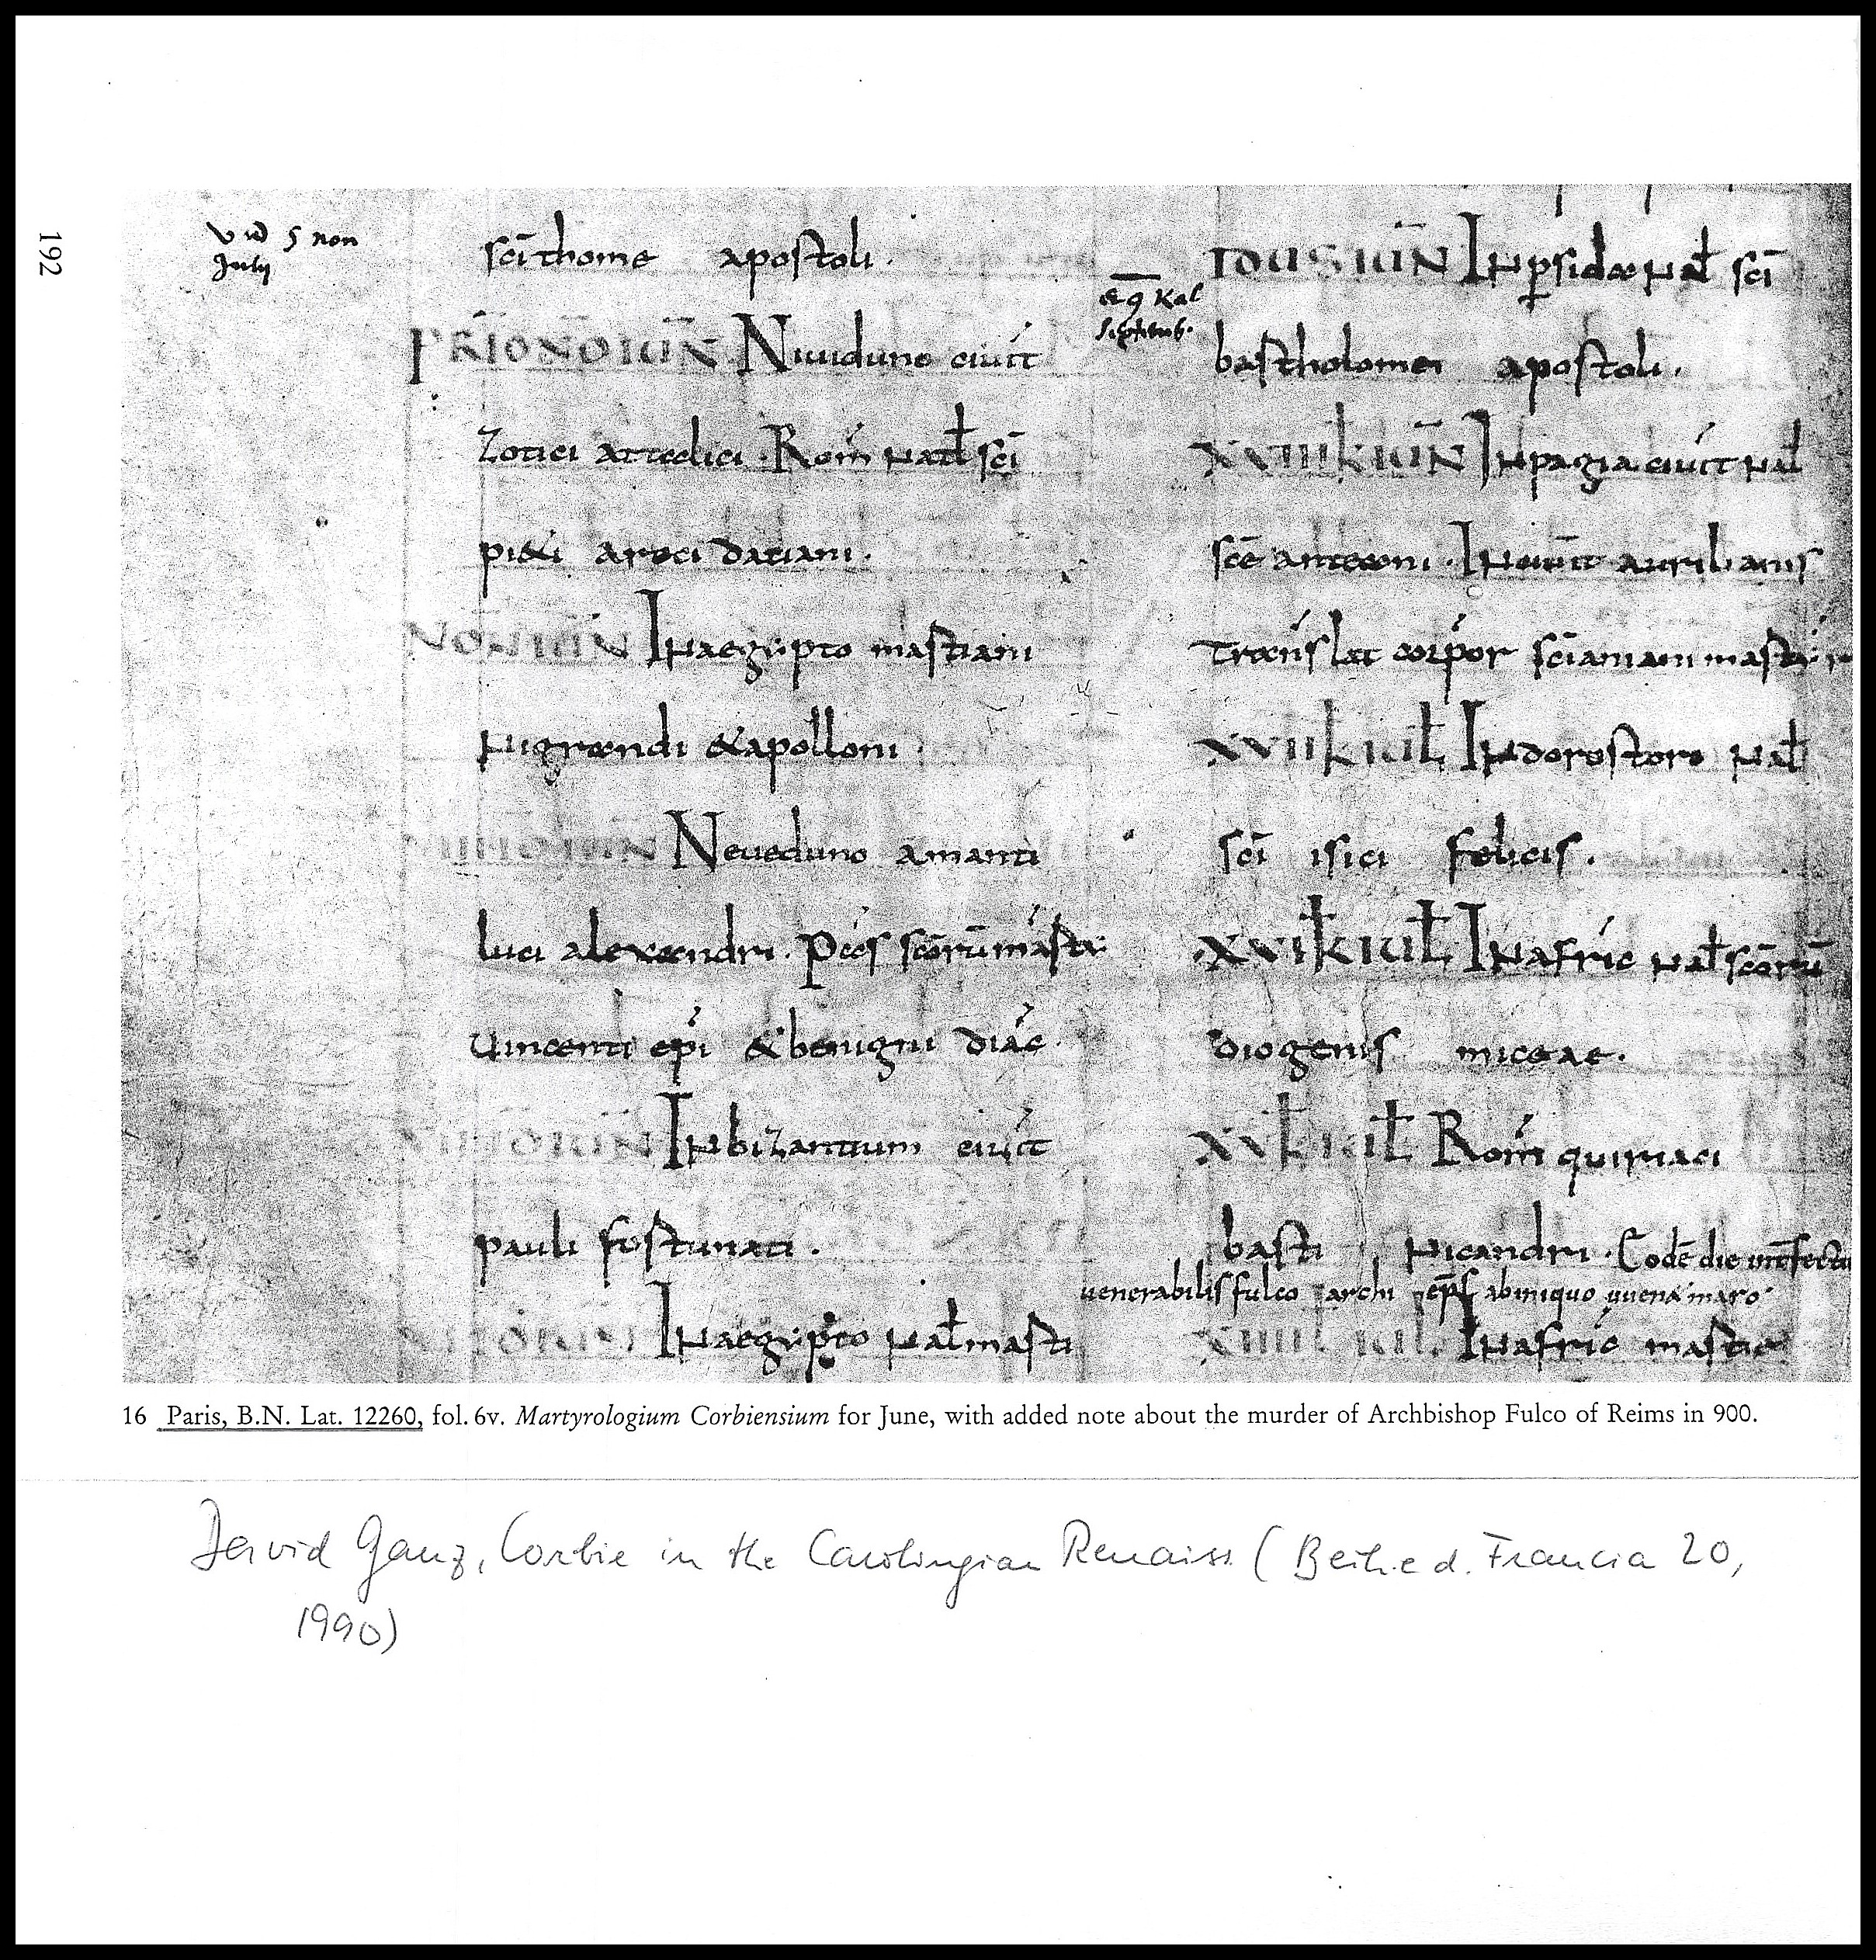 192
sc̄i thome apostoli.
PRĪO NŌ IŪN Niuiduno ciuit
Zotici attedici. Rom natł sc̄i
pi&i aroci datiani.
NON IŪN IN aegypto martiani
Nigrandi & apolloni.
IŪN Neueduno amanti
luci alexandri. Pcis sc̄orū mar̄t
Uincenti epi & benigni diac.
IN bizantium ciuit
pauli fortunati.
IN aegypto Nał marti
v id 5 non
July
IDUS IŪN IN p̱side Nał sc̄i
& 9 Kal
Septemb.
bartholomei apostoli.
XVIII k IŪN IN pagia ciuit Nał
sc̄e anteoni. IN ciuit aurilianis
Translat corpor sc̄i aniani
XVII k IUŁ IN dorostoro Nał
sc̄i isici felicis.
XVI k IUŁ IN afric Nał sc̄orū
diogenis miceae.
XV k IUŁ Rom quiriaci
basti Nicandri. Eodē die int̄fectu
venerabilis fulco archi ep̄s ab iniquo uuenemaro
IN afric
16 Paris, B.N. Lat. 12260, fol. 6v. Martyrologium Corbiensium for June, with added note about the murder of Archbishop Fulco of Reims in 900.
David Ganz, Corbie in the Carolingian Renaiss. (Beih.e d. Francia 20,
1990)